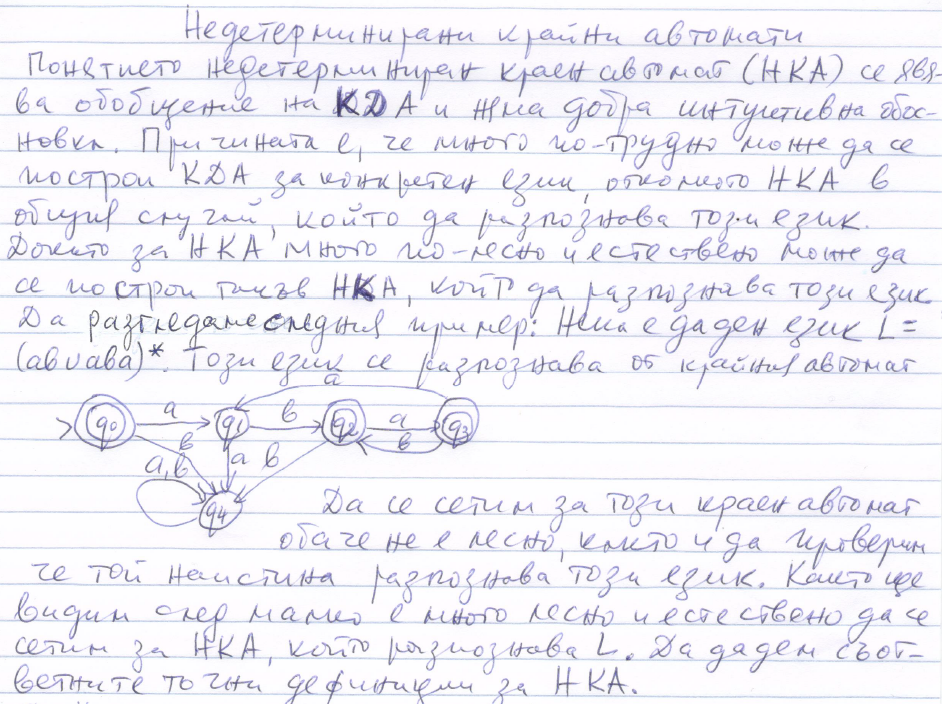 Недетерминирани крайни автомати
Понятието недетерминиран краен автомат (НКА) се явя-
ва обобщение на КДА и има добра интуитивна обос-
новка. Причината е, че много по-трудно може да се
построи КДА за конкретен език, отколкото НКА в
общия случай, който да разпознава този език.
Докато за НКА много по-лесно и естествено може да
се построи такъв НКА, който да разпознава този език
Да разгледаме следния пример: Нека е даден език L =
(ab∪aba)*. Този език се разпознава от крайния автомат
a
> q0 a q1 b q2 a q3
b a b b
a,b
q4
Да се сетим за този краен автомат
обаче не е лесно, както и да проверим
че той наистина разпознава този език. Както ще
видим след малко е много лесно и естествено да се
сетим за НКА, който разпознава L. Да дадем съот-
ветните точни дефиниции за НКА.